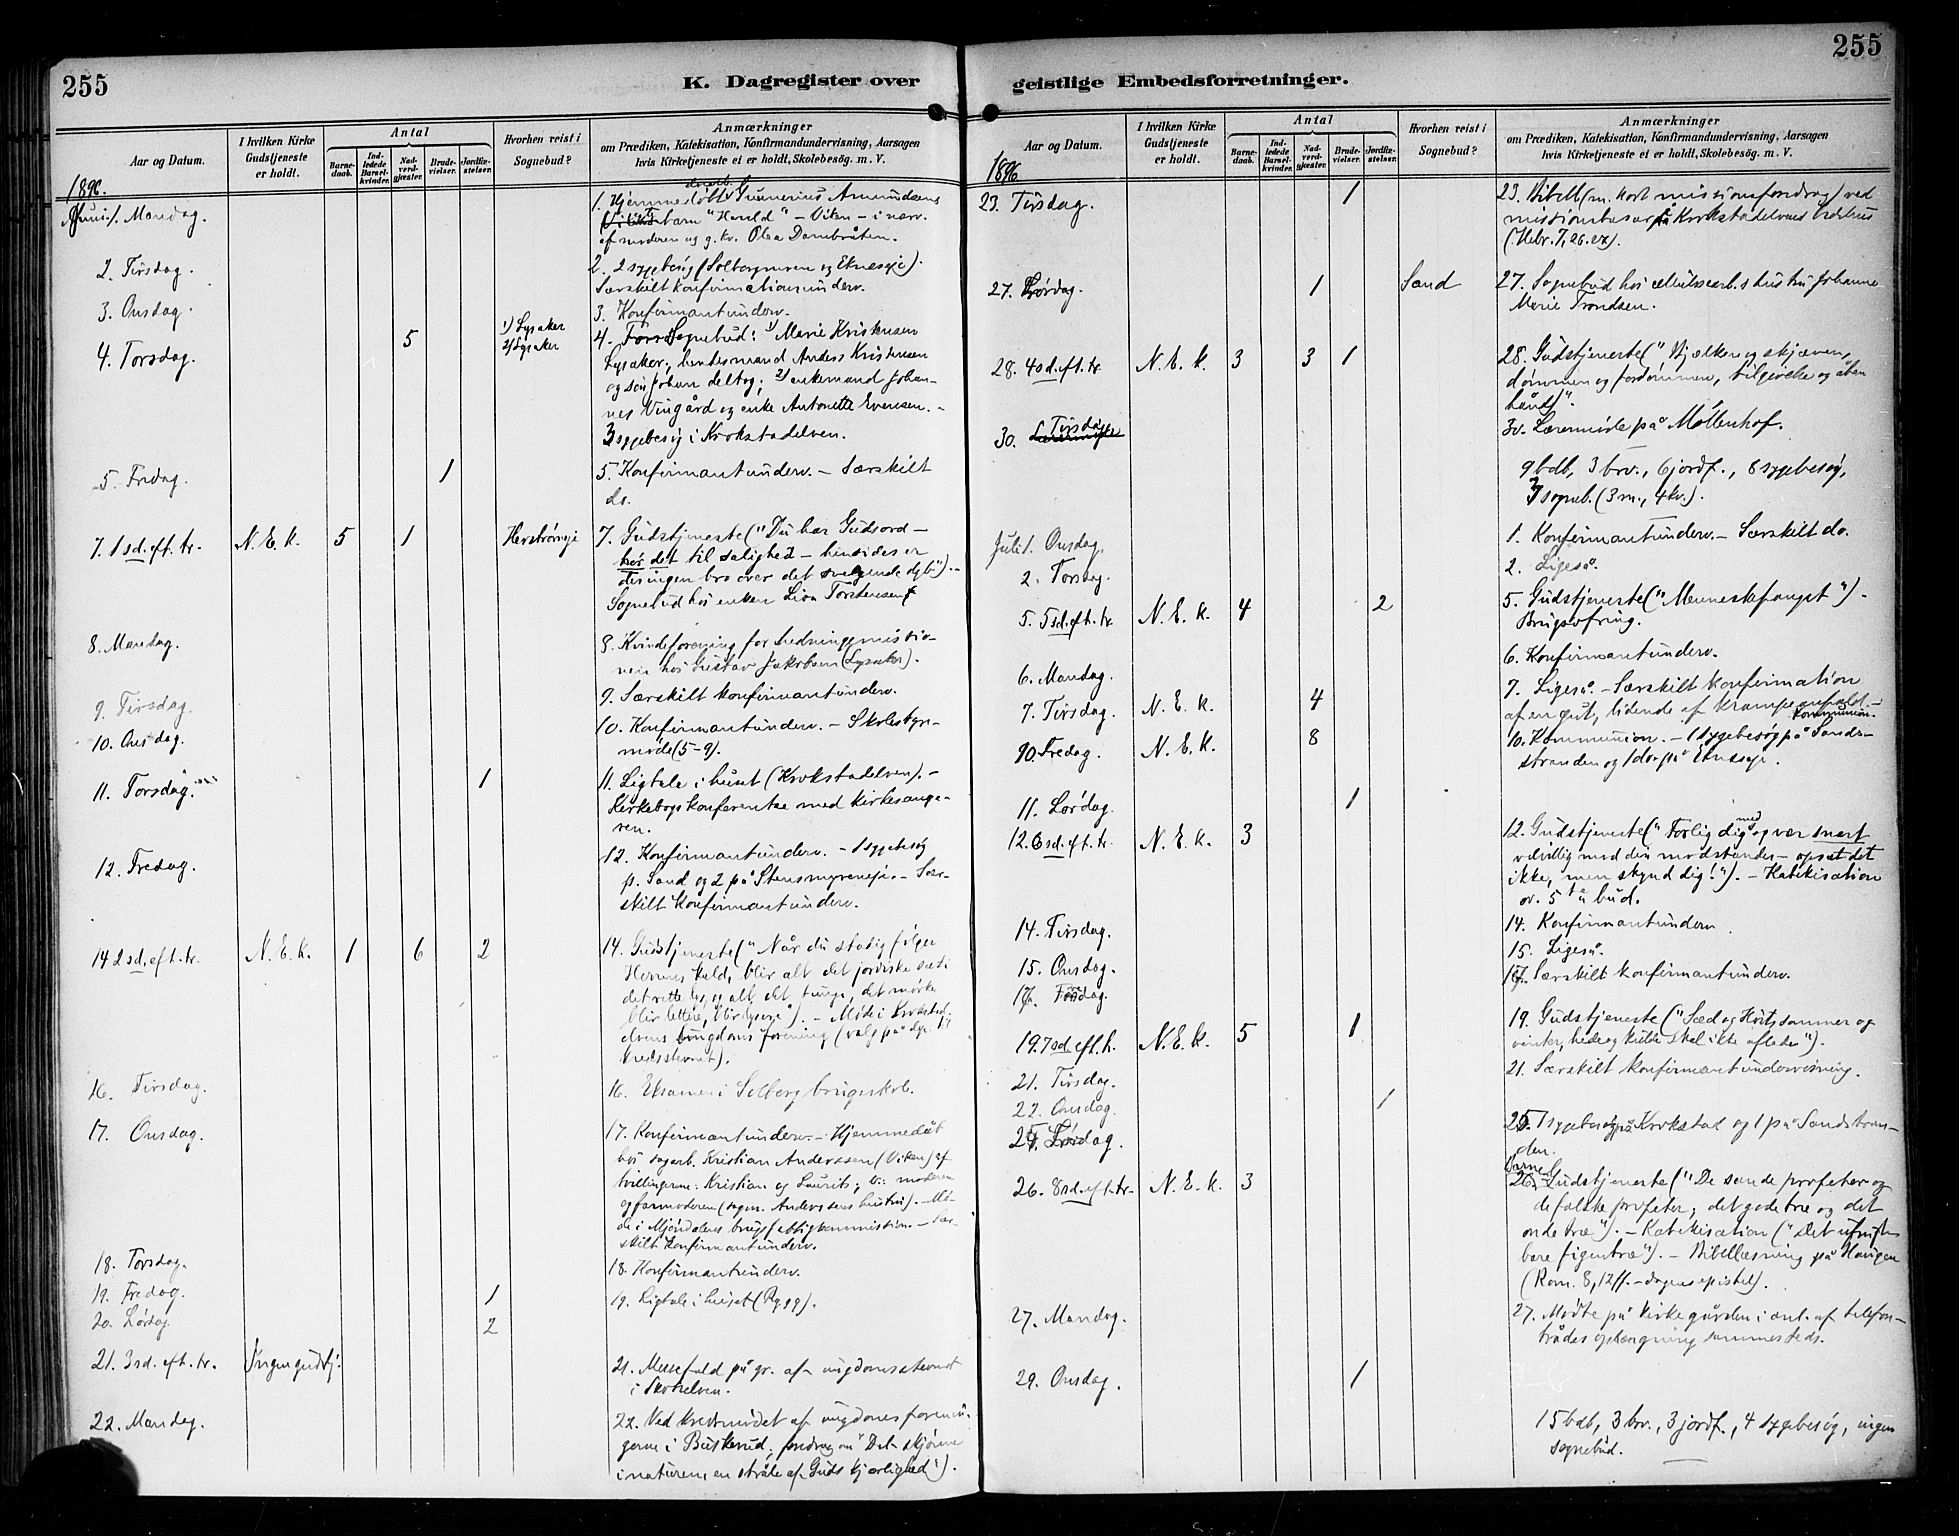 255
K. Dagregister over
Aar og Datum.
I hvilken Kirke Gudstjeneste er holdt.
Antal
Barnedaab.
Indledede Barselkvinder.
Nadverdgjæster.
Brudevielser.
Jordfæstelser.
Hvorhen reist i Sognebud?
Anmærkninger
om Prædiken, Katekisation, Konfirmandundervisning, Aarsagen
hvis Kirketjeneste ei er holdt, Skolebesög. m. V.
1896.
Juni 1. Mandag.
1. Hjemmedøbt Gunnerius Amundsens
barn "Harald" – Viken – i nærv.
af moderen og g. kv. Olea Dambråten.
2. Tirsdag.
2. 2 sygebesøg (Solbergmoen og Ekneseje).
Særskilt konfirmationsunderv.
3. Onsdag.
3. Konfirmantunderv.
4. Torsdag.
5
1) Lysaker
2) Lysaker
4. Sognebud: 1) Marie Kristensen
Lysaker; hendes mand Anders Kristensen
og søn Johan deltog; 2) enkemand Johan-
nes Vingård og enke Antonette Evensen. –
3 sygebesøg i Krokstadelven.
5. Fredag.
1
5. Konfirmantunderv. – Særskilt
do.
7. 1 sd. eft. tr.
N. E. k.
5
1
7. Gudstjeneste ("Du har Guds ord –
hør det til salighed – hinsides er
der ingen bro over det svælgende dyb"). –
Sognebud hos enken Lina Torstensen
8. Mandag.
8. Kvindeforening for hedningemissio-
nen hos Gustav Jakobsen (Lysaker).
9. Tirsdag.
9. Særskilt konfirmantunderv.
10. Onsdag.
10. Konfirmantunderv. – Skolestyre-
møde (5–9).
11. Torsdag.
1
11. Ligtale i huset (Krokstadelven). –
Kirkebogskonferentse med kirkesange-
ren.
12. Fredag.
12. Konfirmantunderv. – 1 sygebesøg
p. Sand og 2 på Stensmyreneje. – Sær-
skilt konfirmantunderv.
14 2 sd. eft. tr.
N. E. k.
1
6
2
14. Gudstjeneste ("Når du stadig følger
Herrens kald, blir alt det jordiske sat i
det rette lys, og alt det tunge, det mørke
blir lettere, blir lysere"). – Møde i Krokstad-
elvens ungdomsforening (valg på dgr. til
kredsstevnet).
16. Tirsdag.
16. Eksamen i Solberg brugsskole.
17. Onsdag.
17. Konfirmantunderv. – Hjemmedåb
hos sagarb. Kristian Anderssen (Viken) af
tvillingerne: Kristian og Laurits; v.: moderen
og farmoderen (sagm. Anderssens hustru). – Mø-
de i Mjøndalens brugs fattigkommission. – Sær-
skilt konfirmantunderv.
18. Torsdag.
18. Konfirmantunderv.
19. Fredag.
1
19. Ligtale i huset (Rygg).
20. Lørdag
2
21. 3 sd. eft. tr.
Ingen gudstj.
21. Messefald på gr. af ungdomsstevnet
i Skotselven.
22. Mandag.
22. Ved kredsmødet af ungdomsforenin-
gerne i Buskerud; foredrag om "Det skjønne
i naturen, en stråle af Guds kjærlighed").
255
geistlige Embedsforretninger.
Aar og Datum.
I hvilken Kirke Gudstjeneste er holdt.
Antal
Barnedaab.
Indledede Barselkvinder.
Nadverdgjæster.
Brudevielser.
Jordfæstelser.
Hvorhen reist i Sognebud?
Anmærkninger
om Prædiken, Katekisation, Konfirmandundervisning, Aarsagen
hvis Kirketjeneste ei er holdt, Skolebesög. m. V.
1896
23. Tirsdag.
1
23. Bibell. (m. kort missionsforedrag) ved
missionsbasar på Krokstadelvens bedehus
(Hebr. 7, 26. 27).
27. Lørdag.
1
Sand
27. Sognebud hos cellulosearb.s hustru Johanne
Marie Trondsen.
28. 4 sd. eft. tr.
N. E. k.
3
3
1
28. Gudstjeneste ("Bjælken og skjæven,
dømmen og fordømmen, tilgivelse og åben
hånd").
30. Tirsdag
30. Læremøde på Møllenhof.
9 bdb, 3 brv., 6 jordf., 8 sygebesøg,
7 sogneb. (3 m., 4 kv.).
Juli 1. Onsdag.
1. Konfirmantunderv. – Særskilt do.
2. Torsdag.
2. Ligeså.
5. 5 sd. eft. tr.
N. E. k.
4
2
5. Gudstjeneste ("Menneskefanget").
Brugsofring.
6. Mandag.
6. Konfirmantunderv.
7. Tirsdag.
N. E. k.
4
7. Ligeså. – Særskilt konfirmation
af en gut, lidende af krampeanfald. –
Kommunion.
10. Fredag.
N. E. k.
8
10. Kommunion. – 1 sygebesøg på Sands-
stranden og 1 do. på Ekneseje.
11. Lørdag.
1
12. 6 sd. eft. tr.
N. E. k.
3
12. Gudstjeneste ("Forlig dig og vær snart
velvillig med din modstander – opsæt det
ikke, men skynd dig!"). – Katekisation
ov. 5te bud.
14. Tirsdag.
14. Konfirmantunderv
15. Onsdag.
15. Ligeså.
17. Fredag.
17. Særskilt konfirmantunderv.
19. 7 sd. eft. tr.
N. E. k.
5
1
19. Gudstjeneste ("Sæd og Høst, sommer og
vinter, hede og kulde skal ikke aflade").
21. Tirsdag.
21. Særskilt konfirmantundervisning.
22. Onsdag.
1
25. Lørdag.
25. 1 sygebesøg på Krokstad og 1 på Sandsstran-
den.
26. 8 sd. eft. tr.
N. E. k.
3
26. Børnegudstjeneste ("De sande profeter og
de falske profeter; det gode træ og det
onde træ"). – Katekisation ("Det ufrugt-
bare figentræ"). – Bibellæsning på Haugen
(Rom. 8, 12 ff. – dagens epistel).
27. Mandag.
27. Møde på kirkegården i anl. af telefon-
trådes ophængning sammesteds.
29. Onsdag.
1
15 bdb, 3 brv., 3 jordf., 4 sygebesøg, ingen
sognebud.